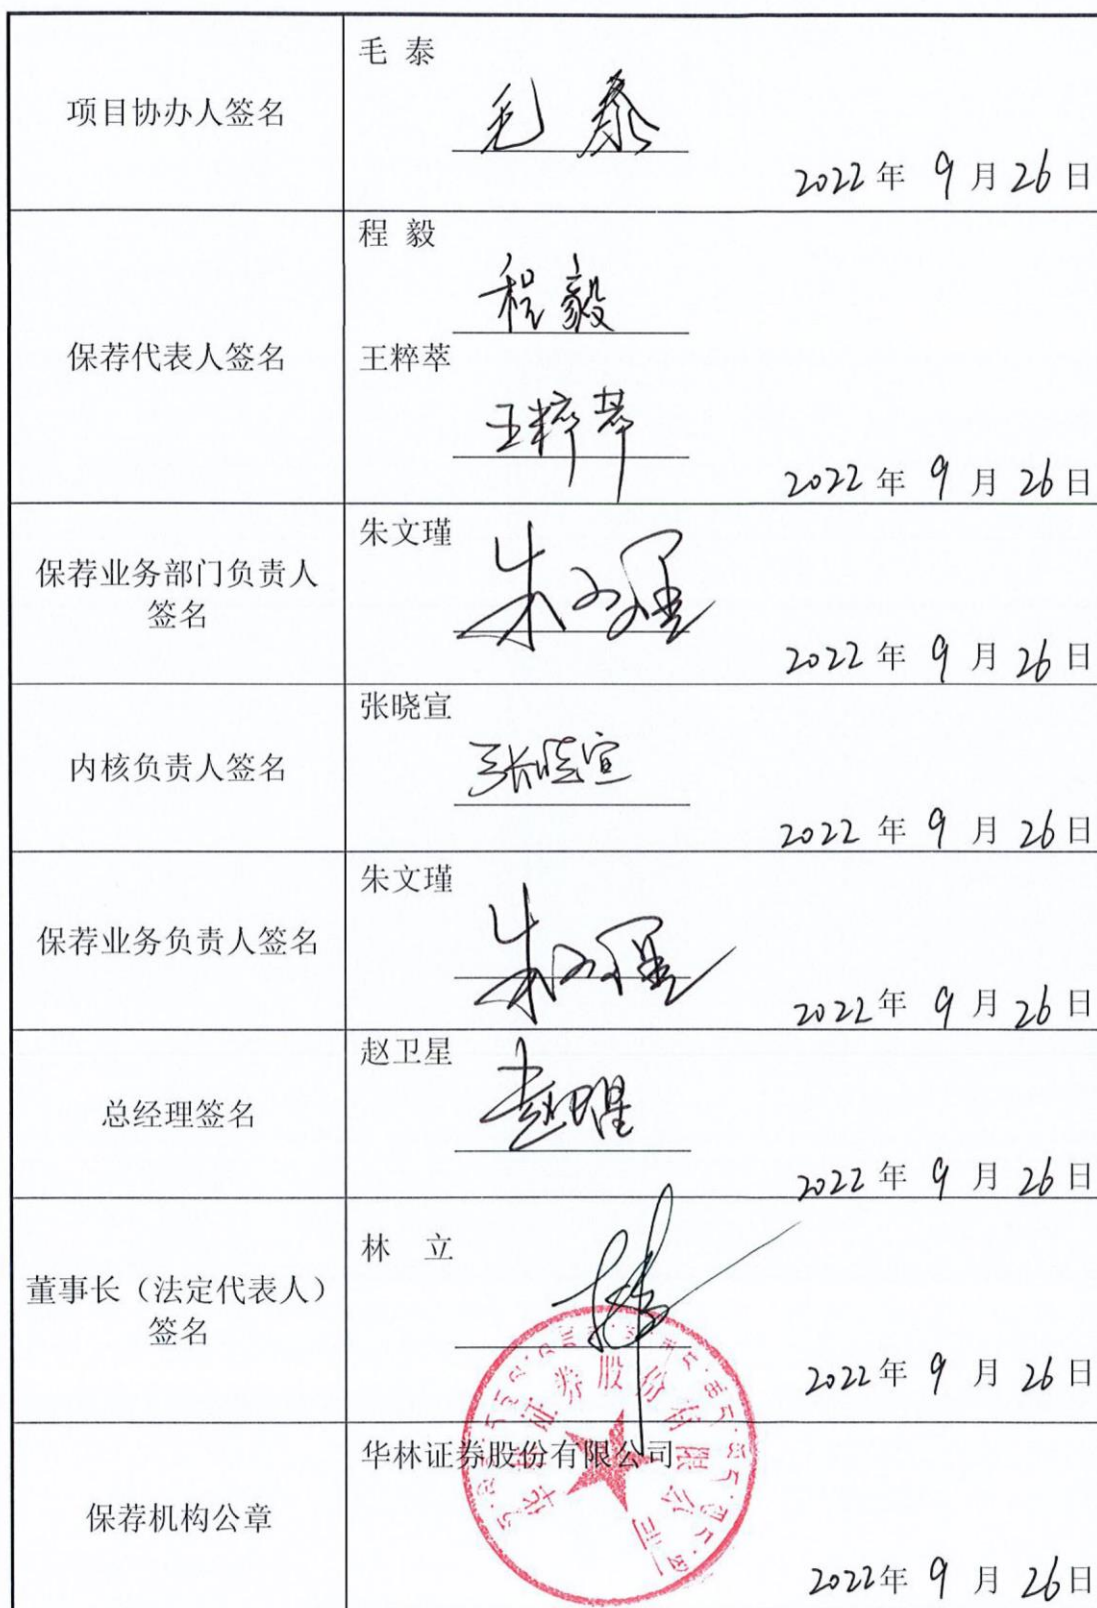 项目协办人签名
毛 泰
毛 泰
2022年 9月26日
保荐代表人签名
程 毅
程毅
王粹萃
王粹萃
2022年 9月26日
保荐业务部门负责人
签名
朱文瑾
朱文瑾
2022年 9月26日
内核负责人签名
张晓宣
张晓宣
2022年 9月26日
保荐业务负责人签名
朱文瑾
朱文瑾
2022年 9月26日
总经理签名
赵卫星
赵卫星
2022年 9月26日
董事长（法定代表人）
签名
林 立
2022年 9月26日
保荐机构公章
华林证券股份有限公司
华林证券股份有限公司
2022年 9月26日